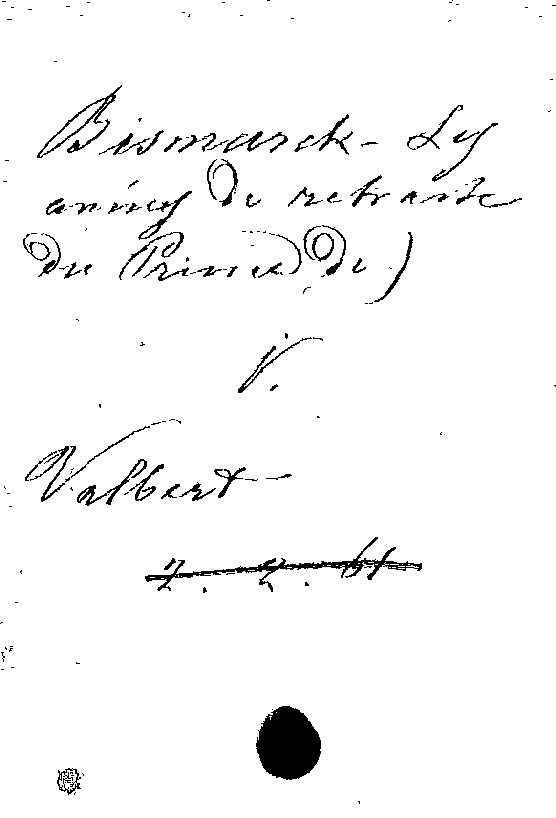 Bismarck - Les
années de retraite
du Prince de)
V.
Valbert
2. 2. 61